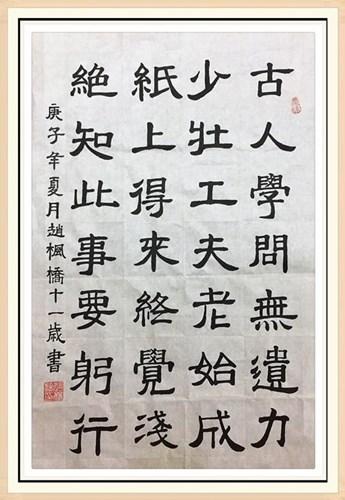 古人學問無遺力
少壯工夫老始成
紙上得來終覺淺
絕知此事要躬行
庚子年夏月趙楓橋十一歲書